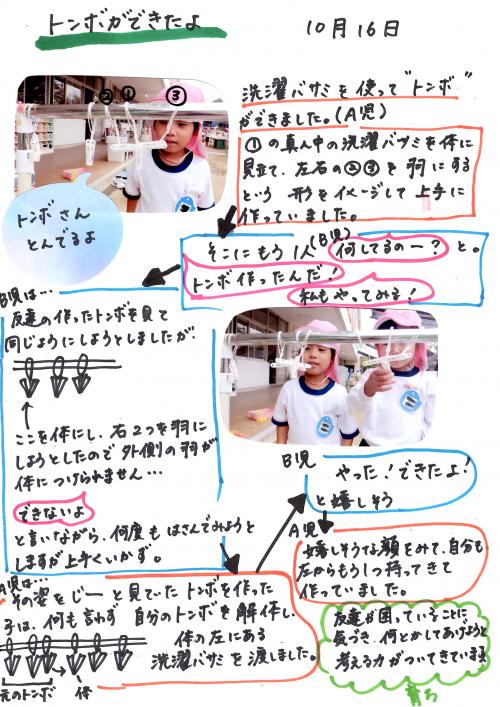 トンボができたよ
10月16日
② ① ③
洗濯バサミを使って"トンボ"
ができました。(A児)
①の真ん中の洗濯バサミを体に
見立て、左右の②③を羽にする
という 形をイメージして上手に
作っていました。
トンボさん
とんでるよ
そこにもう1人(B児)何してるのー?と。
トンボ作ったんだ!
私もやってみる!
B児は…
友達の作ったトンボを見て
同じようにしようとしましたが
ここを体にし、右2つを羽に
しようとしたので外側の羽が
体につけられません…
できないよ
と言いながら、何度もはさんでみようと
しますが上手くいかず。
B児
やった!できたよ!
と嬉しそう
A児
嬉しそうな顔をみて、自分も
左からもう1つ持ってきて
作っていました。
A児は…
その姿をじーと見ていたトンボを作った
子は、何も言わず 自分のトンボを解体し、
体の左にある
洗濯バサミを渡しました。
元のトンボ
体
友達が困っていることに
気づき、何とかしてあげようと
考える力がついてきています!
育ち